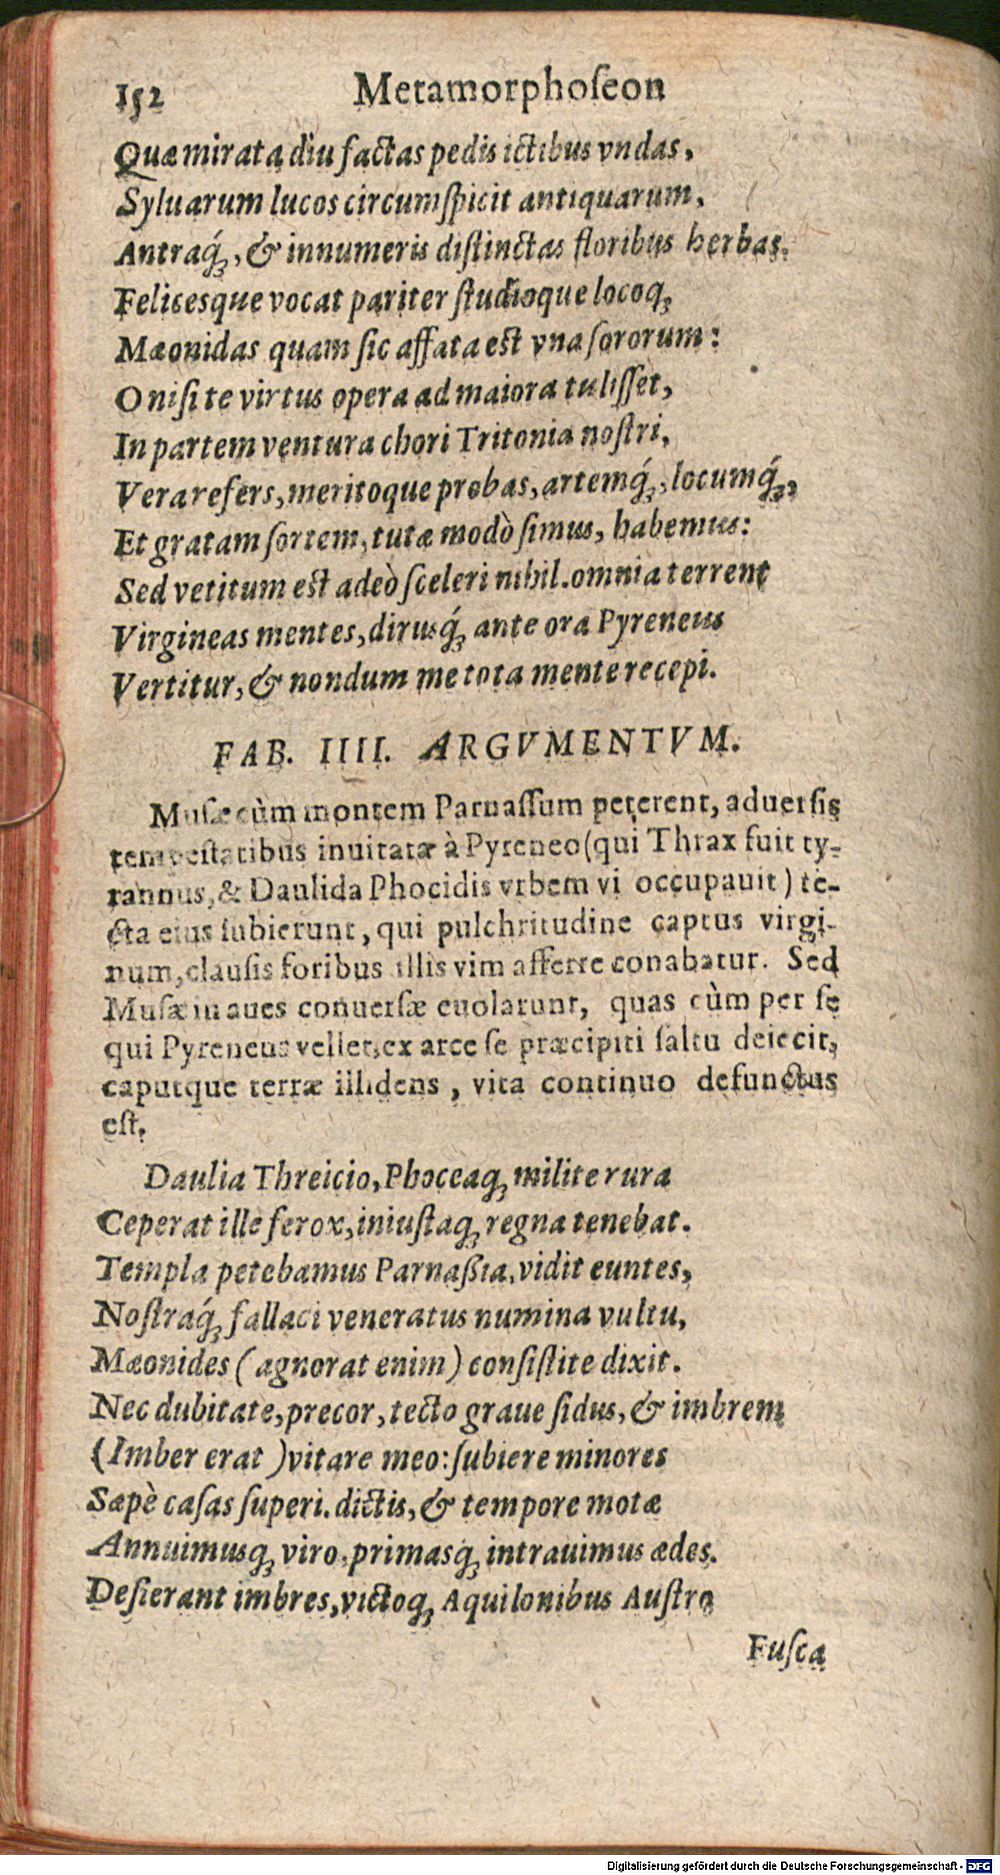 152 Metamorphoſeon
Quæ mirata diu factas pedis ictibus vndas,
Syluarum lucos circumſpicit antiquarum,
Antraq́;, & innumeris diſtinctas floribus herbas.
Felicesque vocat pariter ſtudioque locoq;
Mæonidas quam ſic affata eſt vna ſororum:
O niſi te virtus opera ad maiora tuliſſet,
In partem ventura chori Tritonia noſtri,
Vera refers, meritoque probas, artemq́;, locumq́;,
Et gratam ſortem, tutæ modò ſimus, habemus:
Sed vetitum eſt adeò ſceleri nihil. omnia terrent
Virgineas mentes, dirusq́; ante ora Pyreneus
Vertitur, & nondum me tota mente recepi.
FAB. IIII. ARGVMENTVM.
Muſæ cùm montem Parnaſſum peterent, aduerſis
tempeſtatibus inuitatæ à Pyreneo (qui Thrax fuit ty-
rannus, & Daulida Phocidis vrbem vi occupauit) te-
cta eius ſubierunt, qui pulchritudine captus virgi-
num, clauſis foribus illis vim afferre conabatur. Sed
Muſæ in aues conuerſæ euolarunt, quas cùm per ſe
qui Pyreneus vellet, ex arce ſe præcipiti ſaltu deiecit,
caputque terræ illidens, vita continuo defunctus
eſt.
Daulia Threicio, Phoceaq; milite rura
Ceperat ille ferox, iniuſtaq; regna tenebat.
Templa petebamus Parnaßia, vidit euntes,
Noſtraq́; fallaci veneratus numina vultu,
Mæonides (agnorat enim) conſiſtite dixit.
Nec dubitate, precor, tecto graue ſidus, & imbrem
(Imber erat) vitare meo: ſubiere minores
Sæpè caſas ſuperi. dictis, & tempore motæ
Annuimusq; viro, primasq; intrauimus ædes.
Deſierant imbres, victoq; Aquilonibus Auſtro
Fuſca
Digitalisierung gefördert durch die Deutsche Forschungsgemeinschaft - DFG